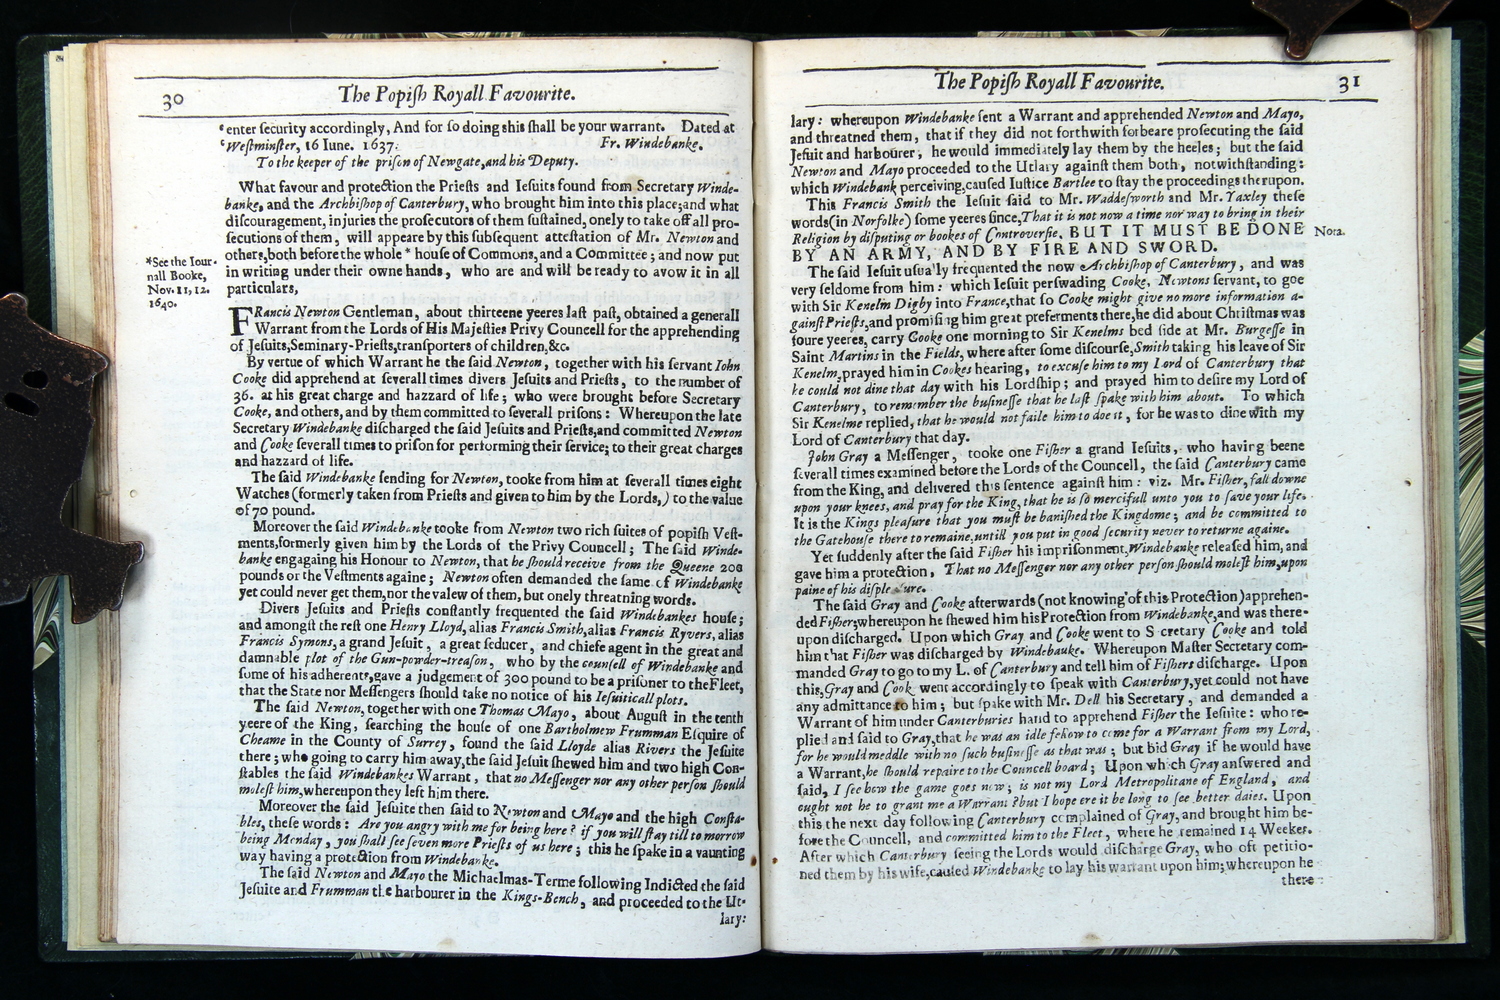 30
The Popish Royall Favourite.
‘enter security accordingly, And for so doing this shall be your warrant. Dated at
‘Westminster, 16 Iune. 1637. Fr. Windebanke.
To the keeper of the prison of Newgate, and his Deputy.
What favour and protection the Priests and Iesuits found from Secretary Winde-
banke, and the Archbishop of Canterbury, who brought him into this place; and what
discouragement, injuries the prosecutors of them sustained, onely to take off all pro-
secutions of them, will appeare by this subsequent attestation of Mr. Newton and
others, both before the whole * house of Commons, and a Committee; and now put
in writing under their owne hands, who are and will be ready to avow it in all
particulars,
*See the Iour-
nall Booke,
Nov. 11, 12.
1640.
FRancis Newton Gentleman, about thirteene yeeres last past, obtained a generall
Warrant from the Lords of His Majesties Privy Councell for the apprehending
of Jesuits, Seminary-Priests, transporters of children, &c.
By vertue of which Warrant he the said Newton, together with his servant Iohn
Cooke did apprehend at severall times divers Jesuits and Priests, to the number of
36. at his great charge and hazzard of life; who were brought before Secretary
Cooke, and others, and by them committed to severall prisons: Whereupon the late
Secretary Windebanke discharged the said Jesuits and Priests, and committed Newton
and Cooke severall times to prison for performing their service; to their great charges
and hazzard of life.
The said Windebanke sending for Newton, tooke from him at severall times eight
Watches (formerly taken from Priests and given to him by the Lords,) to the value
of 70 pound.
Moreover the said Windebanke tooke from Newton two rich suites of popish Vest-
ments, formerly given him by the Lords of the Privy Councell; The said Winde-
banke engaging his Honour to Newton, that he should receive from the Queene 200
pounds or the Vestments againe; Newton often demanded the same of Windebanke
yet could never get them, nor the valew of them, but onely threatning words.
Divers Jesuits and Priests constantly frequented the said Windebankes house;
and amongst the rest one Henry Lloyd, alias Francis Smith, alias Francis Ryvers, alias
Francis Symons, a grand Jesuit, a great seducer, and chiefe agent in the great and
damnable plot of the Gun-powder-treason, who by the counsell of Windebanke and
some of his adherents, gave a judgement of 300 pound to be a prisoner to the Fleet,
that the State nor Messengers should take no notice of his Iesuiticall plots.
The said Newton, together with one Thomas Mayo, about August in the tenth
yeere of the King, searching the house of one Bartholmew Frumman Esquire of
Cheame in the County of Surrey, found the said Lloyde alias Rivers the Jesuite
there; who going to carry him away, the said Jesuit shewed him and two high Con-
stables the said Windebankes Warrant, that no Messenger nor any other person should
molest him, whereupon they left him there.
Moreover the said Jesuite then said to Newton and Mayo and the high Consta-
bles, these words: Are you angry with me for being here? if you will stay till to morrow
being Monday, you shall see seven more Priests of us here; this he spake in a vaunting
way having a protection from Windebanke.
The said Newton and Mayo the Michaelmas-Terme following Indicted the said
Jesuite and Frumman the harbourer in the Kings-Bench, and proceeded to the Ut-
lary:
The Popish Royall Favourite.
31
lary: whereupon Windebanke sent a Warrant and apprehended Newton and Mayo,
and threatned them, that if they did not forthwith forbeare prosecuting the said
Jesuit and harbourer, he would immediately lay them by the heeles; but the said
Newton and Mayo proceeded to the Utlary against them both, notwithstanding:
which Windebank perceiving, caused Iustice Bartlee to stay the proceedings therupon.
This Francis Smith the Iesuit said to Mr. Waddesworth and Mr. Yaxley these
words (in Norfolke) some yeeres since, That it is not now a time nor way to bring in their
Religion by disputing or bookes of Controversie. BUT IT MUST BE DONE
BY AN ARMY, AND BY FIRE AND SWORD.
Nota.
The said Iesuit usually frequented the now Archbishop of Canterbury, and was
very seldome from him: which Iesuit perswading Cooke, Newtons servant, to goe
with Sir Kenelm Digby into France, that so Cooke might give no more information a-
gainst Priests, and promising him great preferments there, he did about Christmas was
foure yeeres, carry Cooke one morning to Sir Kenelms bed side at Mr. Burgesse in
Saint Martins in the Fields, where after some discourse, Smith taking his leave of Sir
Kenelm, prayed him in Cookes hearing, to excuse him to my Lord of Canterbury that
he could not dine that day with his Lordship; and prayed him to desire my Lord of
Canterbury, to remember the businesse that he last spake with him about. To which
Sir Kenelme replied, that he would not faile him to doe it, for he was to dine with my
Lord of Canterbury that day.
John Gray a Messenger, tooke one Fisher a grand Iesuits, who having beene
severall times examined before the Lords of the Councell, the said Canterbury came
from the King, and delivered this sentence against him: viz. Mr. Fisher, fall downe
upon your knees, and pray for the King, that he is so mercifull unto you to save your life.
It is the Kings pleasure that you must be banished the Kingdome; and be committed to
the Gatehouse there to remaine, untill you put in good security never to returne againe.
Yet suddenly after the said Fisher his imprisonment, Windebanke released him, and
gave him a protection, That no Messenger nor any other person should molest him, upon
paine of his displeasure.
The said Gray and Cooke afterwards (not knowing of this Protection) apprehen-
ded Fisher; whereupon he shewed him his Protection from Windebanke, and was there-
upon discharged. Upon which Gray and Cooke went to Secretary Cooke and told
him that Fisher was discharged by Windebauke. Whereupon Master Secretary com-
manded Gray to go to my L. of Canterbury and tell him of Fishers discharge. Upon
this, Gray and Cook went accordingly to speak with Canterbury, yet could not have
any admittance to him; but spake with Mr. Dell his Secretary, and demanded a
Warrant of him under Canterburies hand to apprehend Fisher the Iesuite: who re-
plied and said to Gray, that he was an idle fellow to come for a Warrant from my Lord,
for he would meddle with no such businesse as that was; but bid Gray if he would have
a Warrant, he should repaire to the Councell board; Upon which Gray answered and
said, I see how the game goes now; is not my Lord Metropolitane of England, and
ought not he to grant me a Warrant? but I hope ere it be long to see better daies. Upon
this the next day following Canterbury complained of Gray, and brought him be-
fore the Councell, and committed him to the Fleet, where he remained 14 Weekes.
After which Canterbury seeing the Lords would discharge Gray, who oft petitio-
ned them by his wife, caused Windebanke to lay his warrant upon him; whereupon he
there